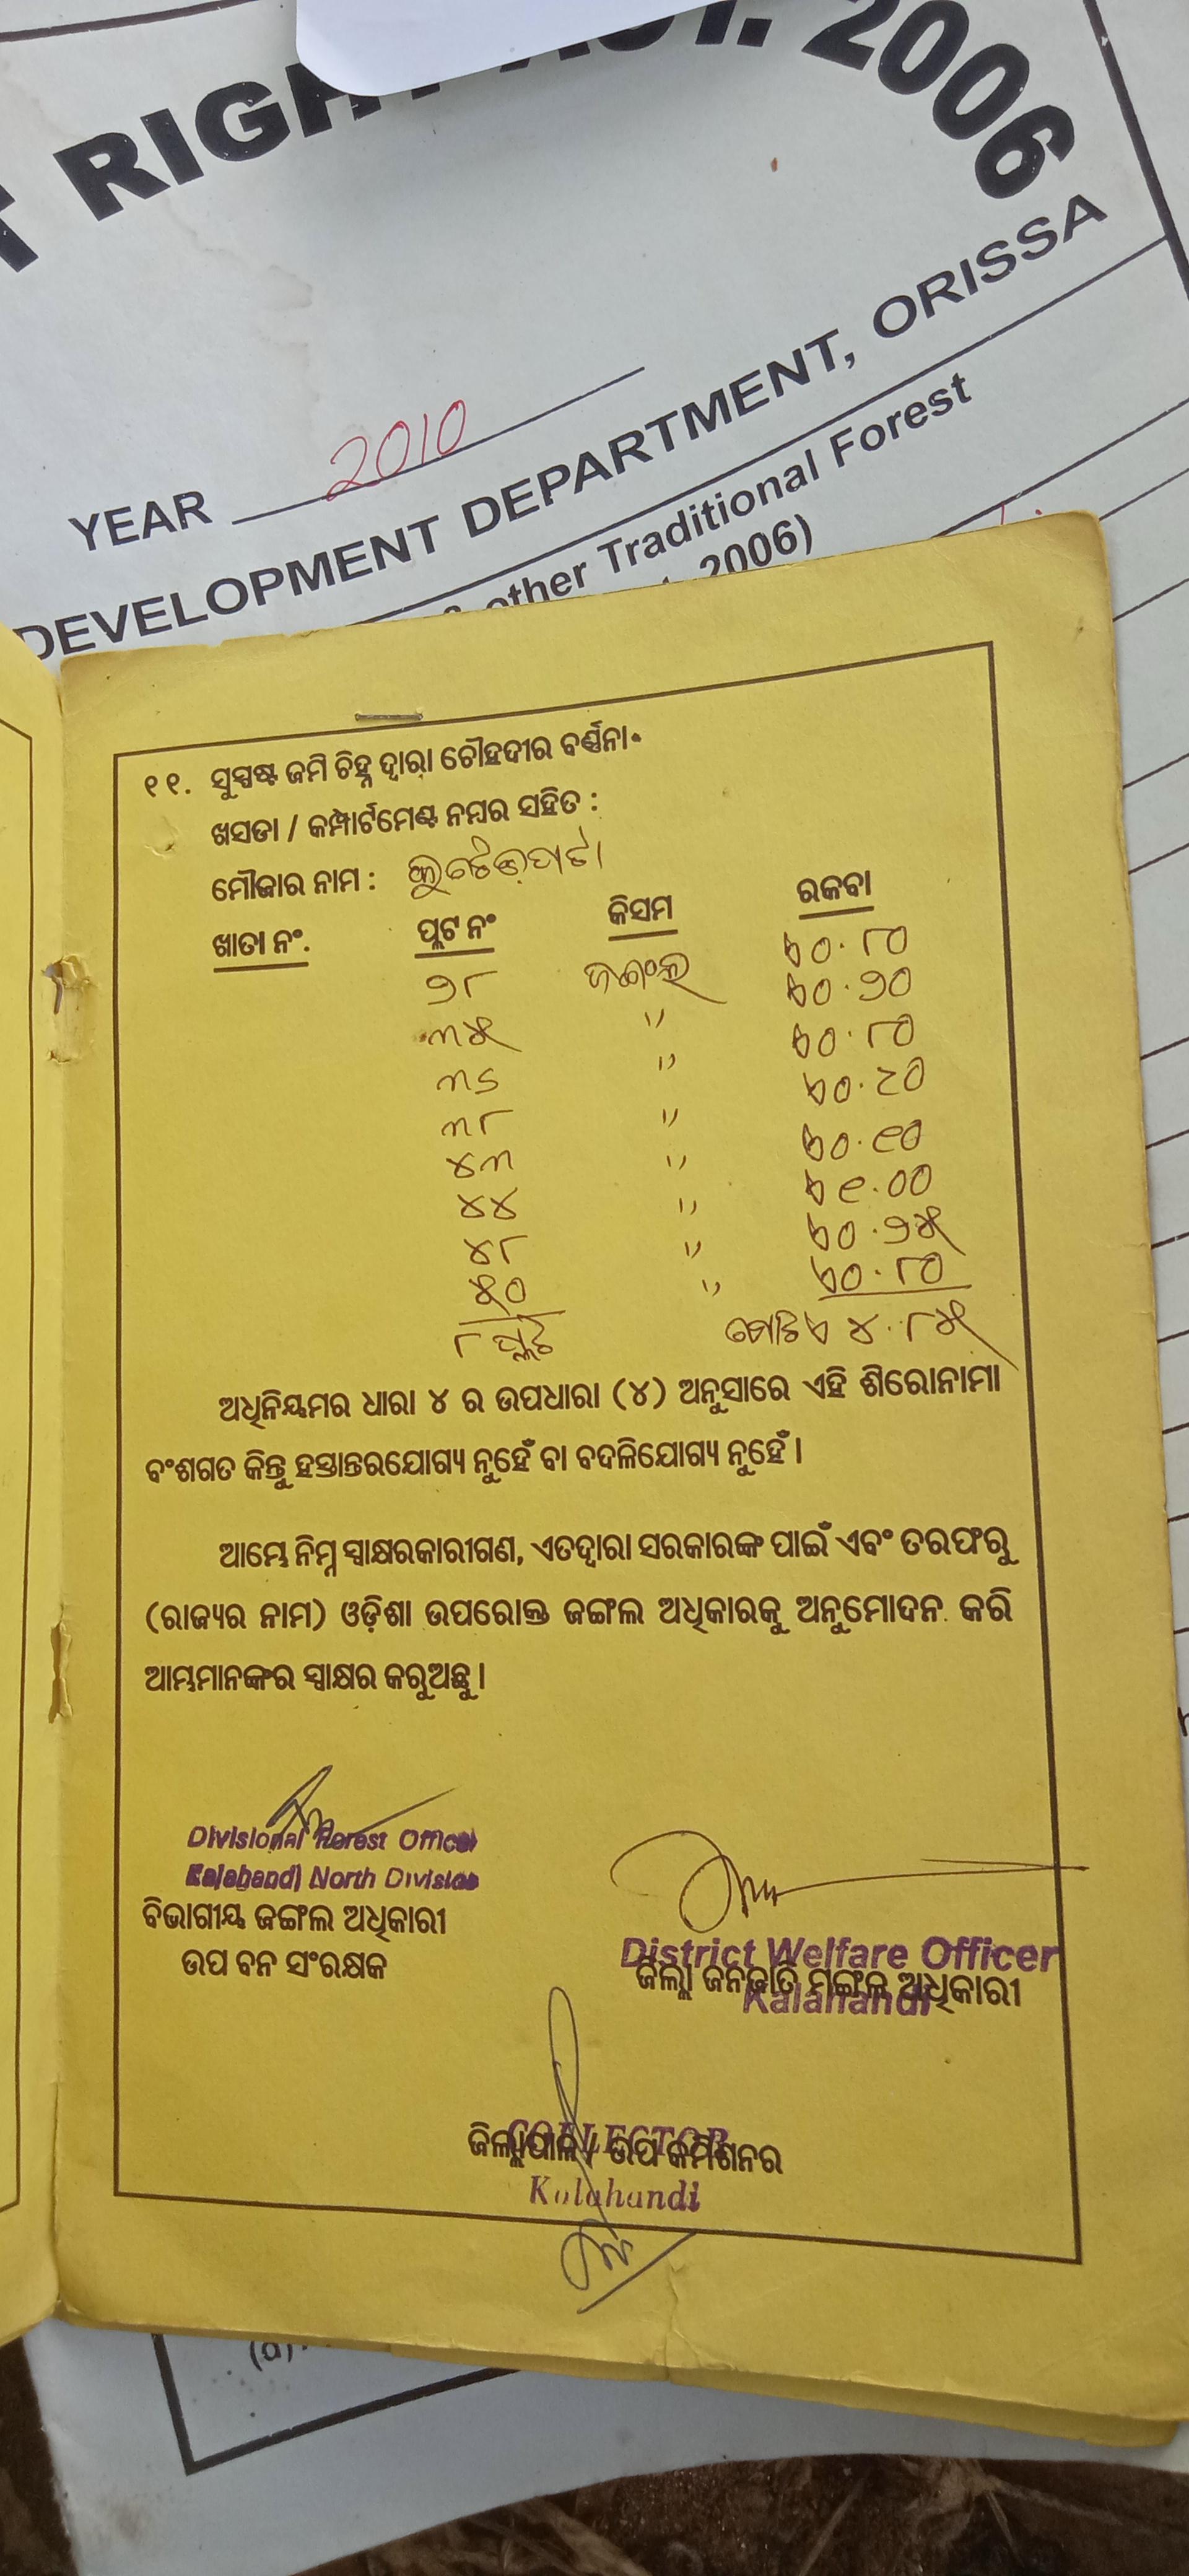 RIGHT ACT. 2006
YEAR 2010
DEVELOPMENT DEPARTMENT, ORISSA
& other Traditional Forest
2006)
୧୧. ସୁସ୍ପଷ୍ଟ ଜମି ଚିହ୍ନ ଦ୍ୱାରା ଚୌହଦୀର ବର୍ଣ୍ଣନା
ଖସଡା / କମ୍ପାର୍ଟମେଣ୍ଟ ନମ୍ବର ସହିତ :
ମୌଜାର ନାମ :
ଖାତା ନଂ. ପ୍ଲଟ ନଂ କିସମ ରକବା
୭୮ ଜଙ୍ଗଲ ୦.୮୦
୩୫ " ୦.୭୦
୩୬ " ୦.୮୦
୩୮ " ୦.୨୦
୪୩ " ୦.୧୦
୪୪ " ୧.୦୦
୪୮ " ୦.୭୫
୫୦ " ୦.୮୦
୮ ପ୍ଲଟ ମୋଟ ଏ ୪.୮୫
ଅଧିନିୟମର ଧାରା ୪ ର ଉପଧାରା (୪) ଅନୁସାରେ ଏହି ଶିରୋନାମା
ବଂଶଗତ କିନ୍ତୁ ହସ୍ତାନ୍ତରଯୋଗ୍ୟ ନୁହେଁ ବା ବଦଳିଯୋଗ୍ୟ ନୁହେଁ ।
ଆମ୍ଭେ ନିମ୍ନ ସ୍ୱାକ୍ଷରକାରୀଗଣ, ଏତଦ୍ୱାରା ସରକାରଙ୍କ ପାଇଁ ଏବଂ ତରଫରୁ
(ରାଜ୍ୟର ନାମ) ଓଡ଼ିଶା ଉପରୋକ୍ତ ଜଙ୍ଗଲ ଅଧିକାରକୁ ଅନୁମୋଦନ କରି
ଆମ୍ଭମାନଙ୍କର ସ୍ୱାକ୍ଷର କରୁଅଛୁ ।
Divisional Forest Officer
Kalahandi North Division
ବିଭାଗୀୟ ଜଙ୍ଗଲ ଅଧିକାରୀ
ଉପ ବନ ସଂରକ୍ଷକ
District Welfare Officer
ଜିଲ୍ଲା ଜନଜାତି ମଙ୍ଗଳ ଅଧିକାରୀ
Kalahandi
COLLECTOR
ଜିଲ୍ଲାପାଳ / ଉପ କମିଶନର
Kalahandi